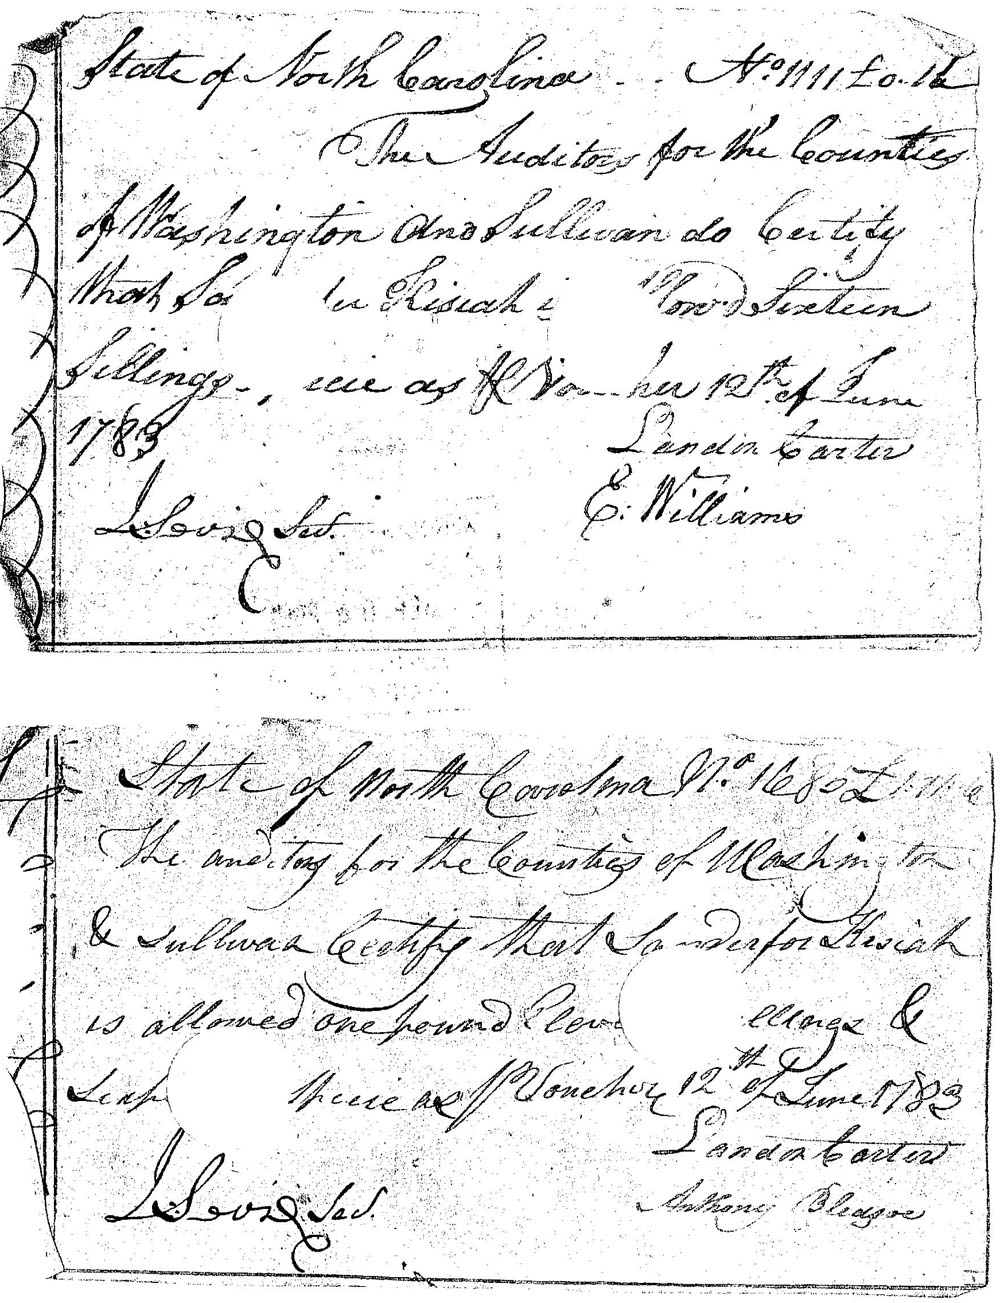 State of North Carolina - - No. 1111 £0. 16
The Auditors for the Counties
of Washington and Sullivan do Certify
that Sa Kisiah i llowd Sixteen
Sillings - as pr Vo her 12th of June
1783
Landon Carter
E. Williams
J Sevier
State of North Carolina No. 1680 £
The auditors for the Counties of Washington
& Sullivan Certify that Sanderfor Kisiah
is allowed one pound Eleve ellings &
Sixp as pr Voucher 12th of June 1783
Landon Carter
Anthony Bledsoe
J Sevier